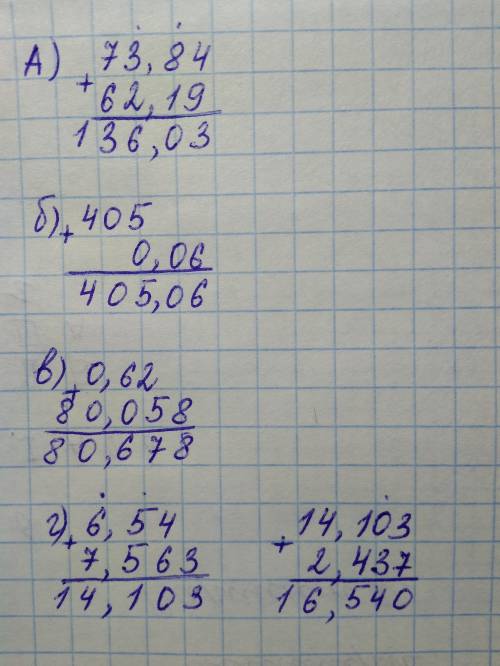 А) 73,84
+ 62,19
136,03
б) + 405
0,06
405,06
в) + 0,62
80,058
80,678
г) + 6,54
7,563
14,103
+ 14,103
2,437
16,540